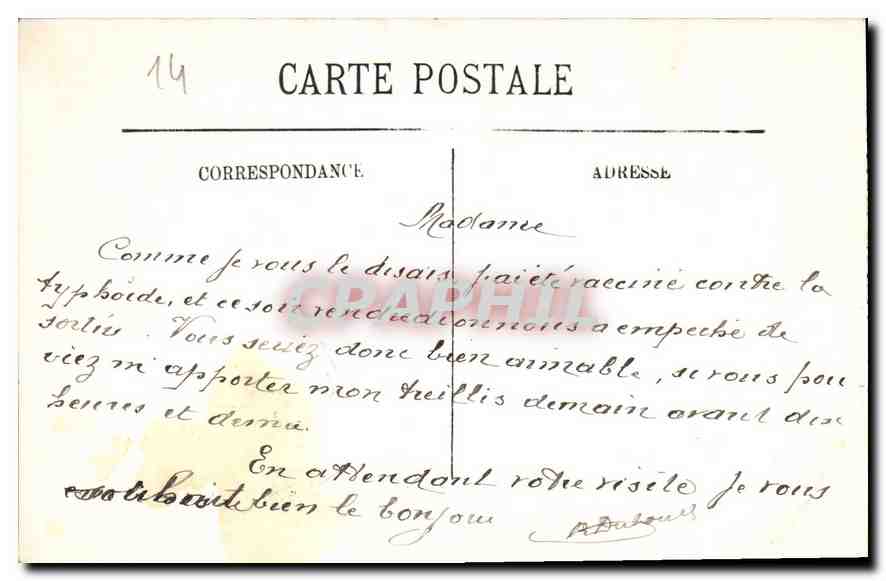 14
CARTE POSTALE
CORRESPONDANCE
ADRESSE
Madame
Comme je vous le disais j'ai été vacciné contre la
typhoïde, et ce soir vendredi on nous a empeché de
sortir. Vous seriez donc bien aimable, si vous pou-
viez m'apporter mon treillis demain avant dix
heures et demie.
En attendant votre visite je vous
souhaite bien le bonjour
CPAPHIL